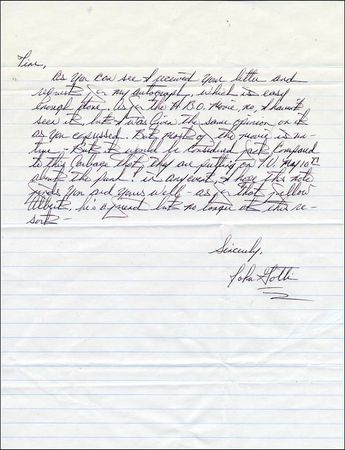 Tim,
As you can see I received your letter and
request for my autograph, which is easy
enough done. As for the H.B.O. Movie, no, I haven't
seen it, but I was given the same opinion on it
as you expressed. But most of the movie is
- But it would be considered compared
to this garbage that they are putting on T.V. May 10th
about the punk! in any event, I hope this note
finds you and yours well - as for that fellow
Albert, he's a friend but no longer at this re-
sort -
Sincerely,
John Gotti